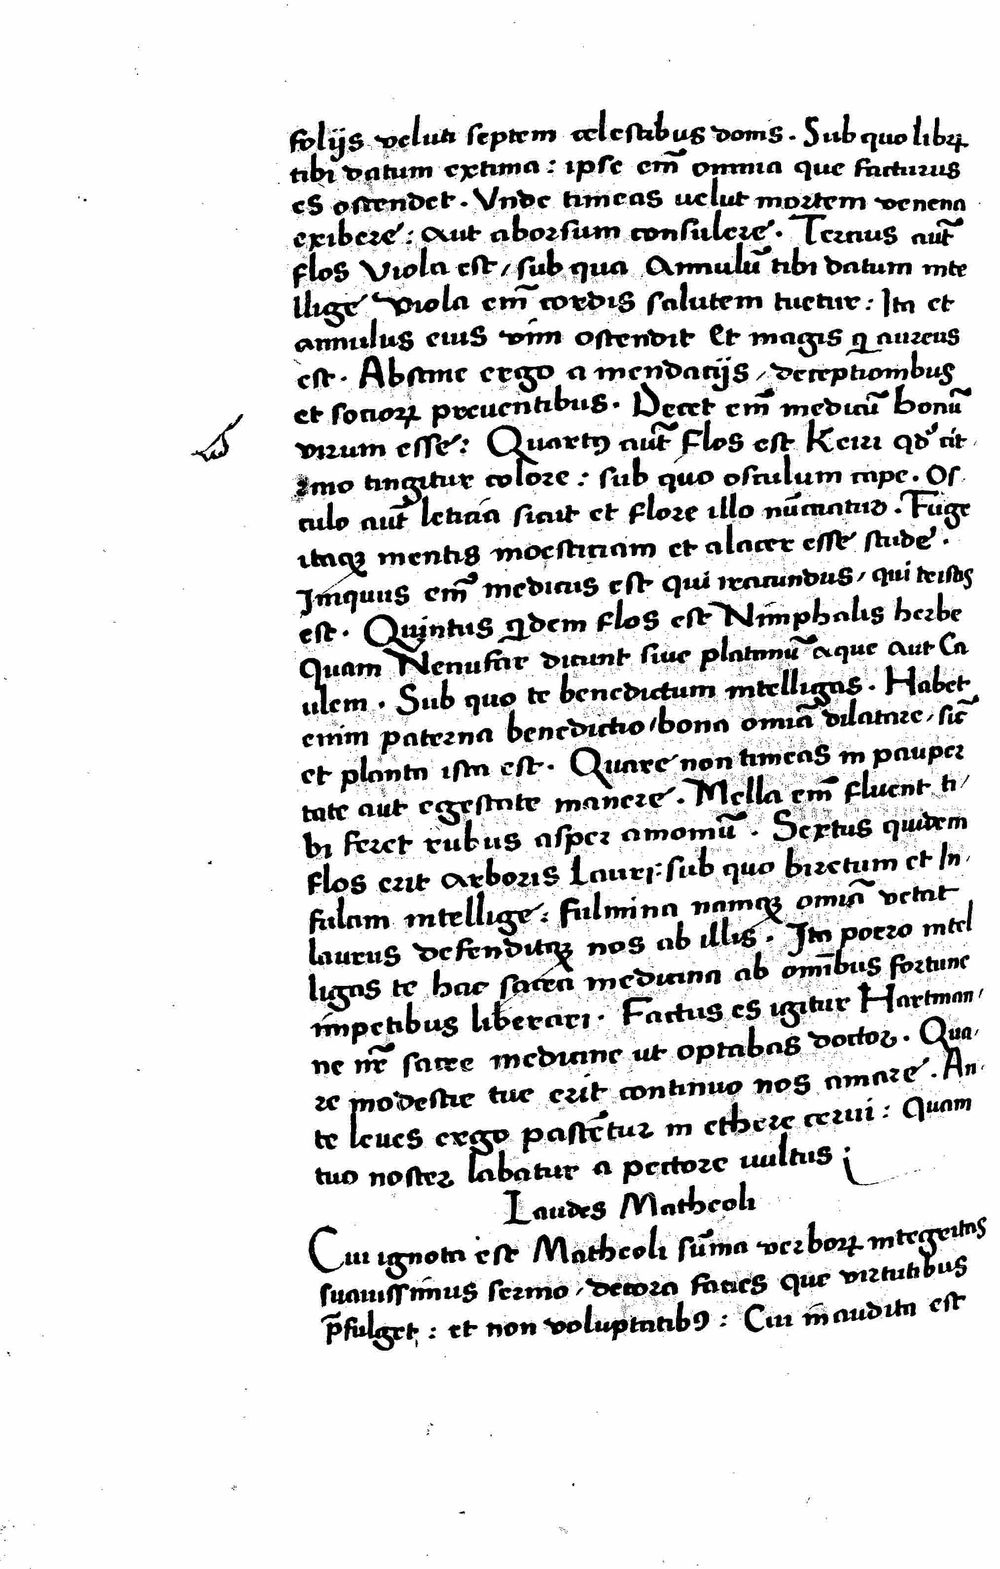 folijs veluti septem celestibus donis. Sub quo libꝝ
tibi datum extima: ipse em̃ omnia que facturus
es ostendet. Vnde timeas uelut mortem venena
exibere: aut aborsum consulere. Tertius aut̃
flos Viola est, sub qua Annulũ tibi datum inte
llige Viola em̃ cordis salutem tuetur: Ita et
annulus eius vim ostendit Et magis ꝙ aureus
est. Abstine ergo a mendatijs, deceptionibus
et socioꝝ preuentibus. Decet em̃ medicũ bonũ
virum esse: Quartꝯ aut̃ flos est Keiri qd' cit
rino tingitur colore: sub quo osculum cape. Os
culo aut̃ leticia sicut et flore illo nũciatur. Fuge
itaqꝫ mentis moesticiam et alacer esse stude.
Iniquus em̃ medicus est qui iracundus, qui tristis
est. Quintus ꝗdem flos est Nimphalis herbe
Quam Nenufar dicunt siue platanũ aque aut Ca
ulem. Sub quo te benedictum intelligas. Habet
enim paterna benedictio, bona omĩa dilatare, sic̃
et planta ista est. Quare non timeas in pauper
tate aut egestate manere. Mella em̃ fluent ti,
bi feret rubus asper amomũ. Sextus quidem
flos erit arboris Lauri: sub quo biretum et In,
fulam intellige: fulmina namqꝫ omĩa vetat
laurus defenditqꝫ nos ab illis. Ita porro intel
ligas te hac sacra medicina ab omĩbus fortune
impetibus liberari. Factus es igitur Hartman,
ne nr̃e sacre medicine ut optabas doctor. Qua,
re modestie tue erit continuo nos amare. An,
te leues ergo pascẽtur in ethere cerui: Quam
tuo noster labatur a pectore uultus;
Laudes Matheoli
Cui ignota est Matheoli sũma verboꝝ integritas
suauissimus sermo, decora facies que virtutibus
p̃fulget: et non voluptatibꝯ: Cui inaudita est